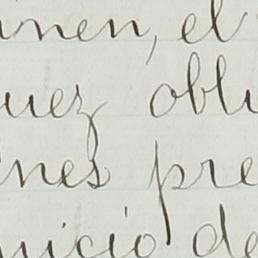 nen, el
uez obli
nes pre
nicio de